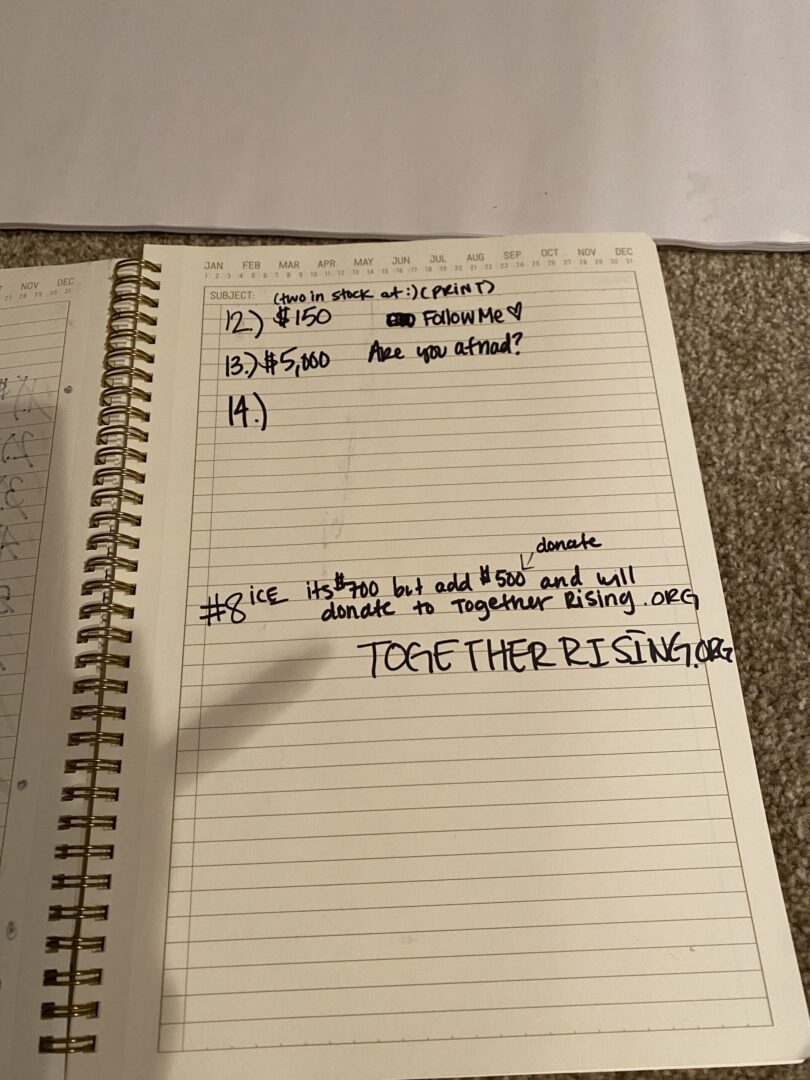 NOV DEC
JAN FEB MAR APR MAY JUN JUL AUG SEP OCT NOV DEC
1 2 3 4 5 6 7 8 9 10 11 12 13 14 15 16 17 18 19 20 21 22 23 24 25 26 27 28 29 30 31
SUBJECT: (two in stock at :) (PRINT)
12.) $150 Follow Me ♡
13.) $5,000 Are you afriad?
14.)
donate
#8 ICE its $700 but add $500 and will
donate to Together Rising.ORG
TOGETHERRISING.ORG